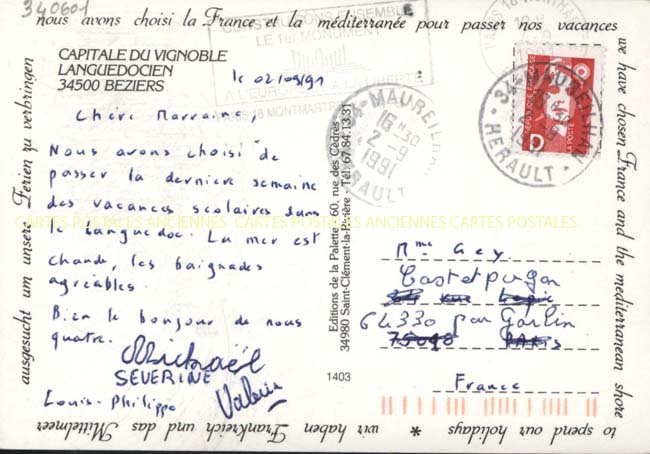 340601
nous avons choisi la France et la méditerranée pour passer nos vacances
we have chosen France and the mediterranean shore
to spend our holidays * wir haben Frankreich und das Mittelmeer
ausgesucht um unsere Ferien zu verbringen
CAPITALE DU VIGNOBLE
LANGUEDOCIEN
34500 BEZIERS
le 02/09/91
Chère Marraine,
Nous avons choisi de
passer la dernière semaine
des vacances scolaires dans
le Languedoc. La mer est
chaude, les baignades
agréables.
Bien le bonjour de nous
quatre.
Michaël
SEVERINE
Louis-Philippe
Valérie
Editions de la Palette - 60, rue des Cèdres
34980 Saint-Clément-la-Rivière - Tél. 67.84.13.31
1403
CONSTRUISONS ENSEMBLE
LE 1er MONUMENT
A L'EUROPE A LA LIBERTE
PARIS 18 MONTMARTRE
34-MAUREILHAN
16 H 30
2-9
1991
HERAULT
PARIS 18 MONTMARTRE
34-MAUREILHAN
1991
HERAULT
REPUBLIQUE FRANÇAISE
LA POSTE
Mme Gey
Castetpugon
rue Lepic
64330 par Garlin
75018 PARIS
France
CARTES POSTALES ANCIENNES CARTES POSTALES ANCIENNES CARTES POSTALES